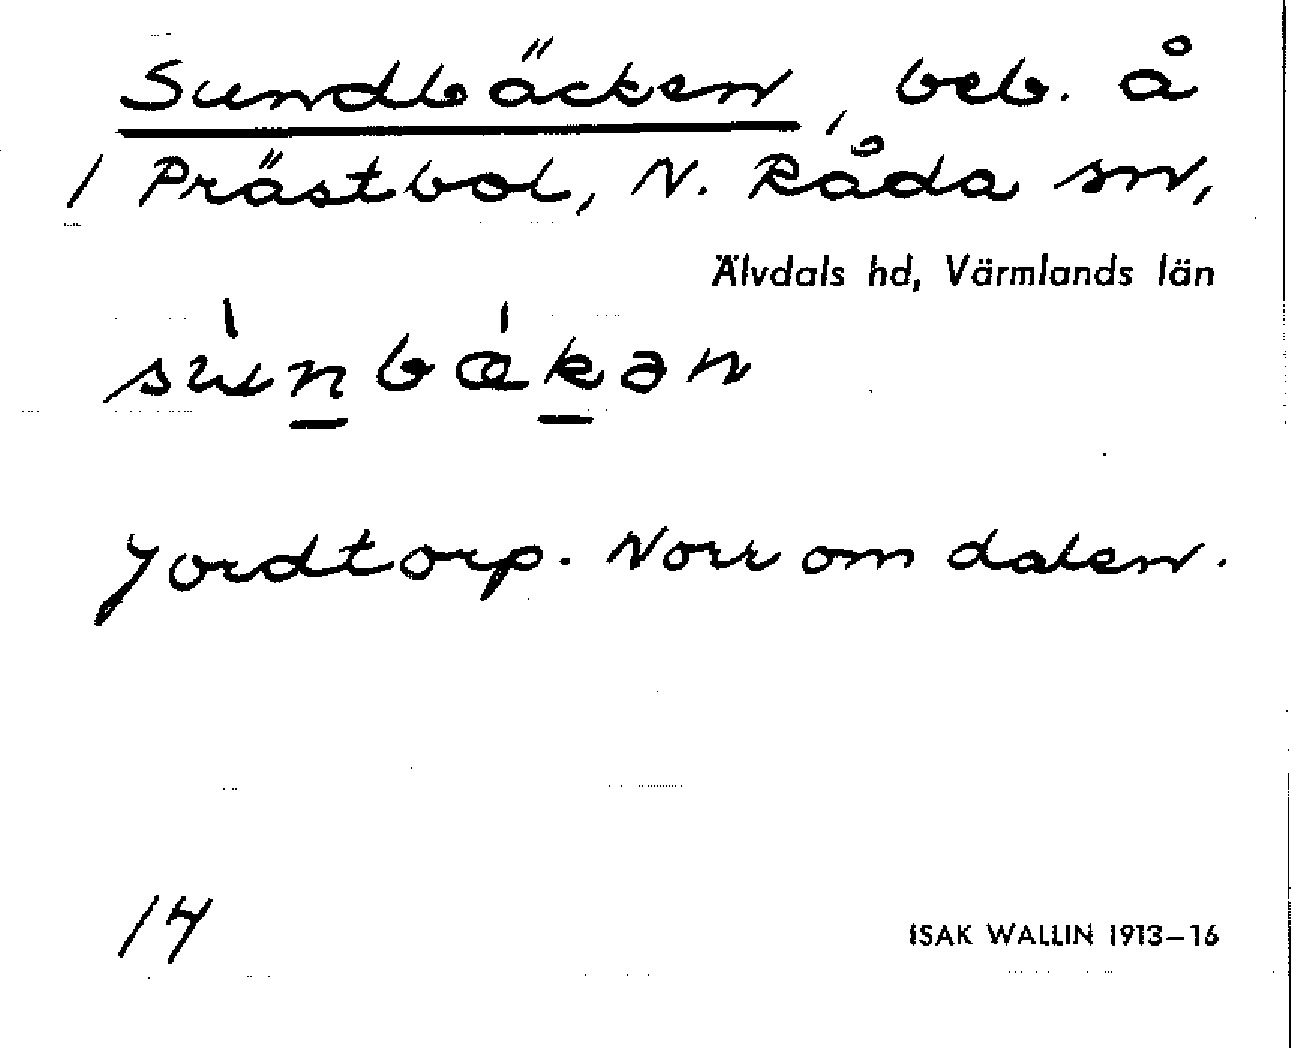 Sundbäcken, beb. å
1 Prästbol, N. Råda sn,
Älvdals hd, Värmlands län
sùnbǽkən
Jordtorp. Norr om dalen.
14
ISAK WALLIN 1913–16